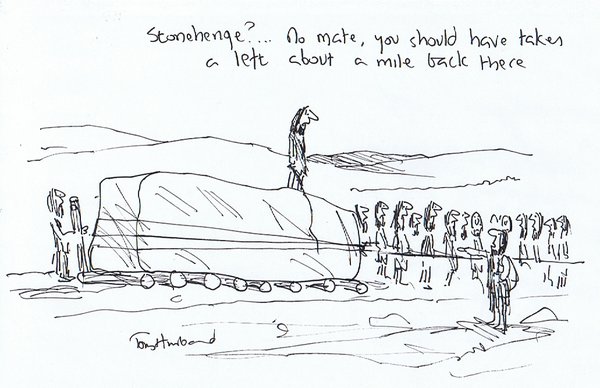 Stonehenge?... No mate, you should have taken
a left about a mile back there
Tony Husband